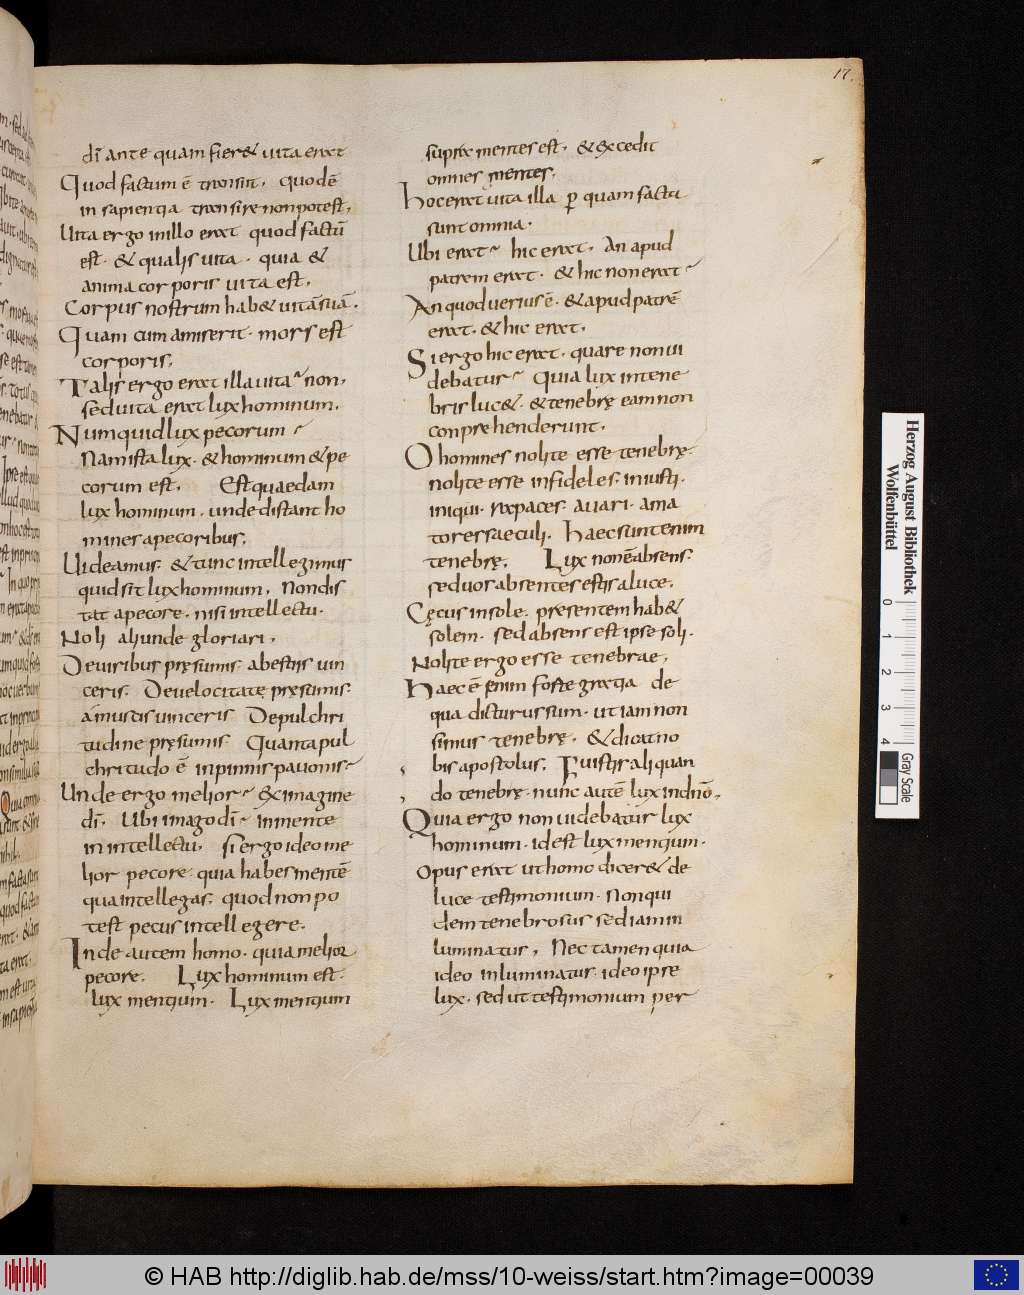 17.
di ante quam fier& uita erat
Quod factum ē transiit. quod ē
in sapientia transire non potest,
Uita ergo in illo erat quod factū
est. & qualis uita. quia &
anima corporis uita est,
Corpus nostrum hab& uitā suā.
Quam cum amiserit. mors est
corporis,
Talis ergo erat illa uita non,
sed uita erat lux hominum,
Numquid lux pecorum
Nam ista lux. & hominum & pe
corum est. Est quaedam
lux hominum. unde distant ho
mines a pecoribus,
Uideamus. & tunc intellegimus
quid sit lux hominum, Non dis
tat a pecore. nisi intellectu.
Noli aliunde gloriari,
De uiribus pręsumis. a bestiis uin
ceris. De uelocitate pręsumis.
a muscis uinceris De pulchri
tudine pręsumis. Quanta pul
chritudo ē in pinnis pauonis
Unde ergo melior Ex imagine
dī. Ubi imago dī in mente
in intellectu, si ergo ideo me
lior pecore. quia habes mentē
qua intellegas. quod non po
test pecus intellegere.
Inde autem homo. quia melior
pecore. Lux hominum est.
lux mentium. Lux mentium
supra mentes est. & excedit
omnes mentes,
Hoc erat uita illa p quam facta
sunt omnia.
Ubi erat hic erat, An apud
patrem erat. & hic non erat
An quod uerius ē. & apud patrē
erat. & hic erat,
Si ergo hic erat. quare non ui
debatur Quia lux in tene
bris luc&. & tenebrę eam non
conprehenderunt,
O homines nolite esse tenebrę
nolite esse infideles. iniusti.
iniqui. rapaces. auari. ama
tores saeculi. Haec sunt enim
tenebrę, Lux non ē absens.
sed uos absentes estis a luce,
Cęcus in sole. presentem hab&
solem. sed absens est ipse soli.
Nolite ergo esse tenebrae,
Haec ē enim forte gratia de
qua dicturus sum. ut iam non
simus tenebrę. & dicat no
bis apostolus. Fuistis aliquan
do tenebrę. nunc autē lux in dnō,
Quia ergo non uidebatur lux
hominum. id est lux mentium.
opus erat ut homo dicer& de
luce testimonium. Non qui
dem tenebrosus sed iam in
luminatur, Nec tamen quia
ideo inluminatus ideo ipse
lux. sed ut testimonium per
Herzog August Bibliothek
Wolfenbüttel
0 1 2 3 4
Gray Scale
© HAB http://diglib.hab.de/mss/10-weiss/start.htm?image=00039